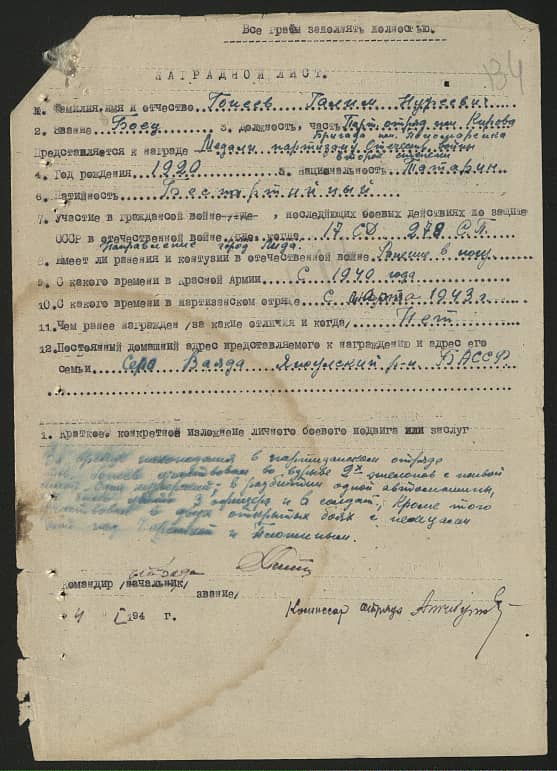 Все графы заполнять полностью.
134
НАГРАДНОЙ ЛИСТ.
1. Фамилия, имя и отчество Гонеев Галим Нургеевич
2. Звание Боец 3. должность, часть Парт. отряд им Кирова
Бригада им Пономаренко
Представляется к награде Медали партизану Отечеств. войны
второй степени
4. Год рождения 1920 5. национальность Татарин
6. Партийность Беспартийный
7. Участие в гражданской войне, где, последующих боевых действиях по защите
СССР в отечественной войне, где, когда 17 СД 278 С.П.
Направление город Лида.
8. Имеет ли ранения и контузии в отечественной войне Ранен в ногу
9. С какого времени в Красной Армии С 1940 года
10. С какого времени в партизанском отряде С марта 1943 г.
11. Чем ранее награжден /за какие отличия и когда/ Нет
12. Постоянный домашний адрес представляемого к награждению и адрес его
семьи Село Ваяда р-н БАССР
1. Краткое, конкретное изложение личного боевого подвига или заслуг
За время нахождения в партизанском отряде
участвовал во взрыве 2х эшелонов с живой
в разбитии одной автомашины,
убито 3 офицера и 8 солдат; Кроме того
в двух открытых боях с немцами
под и
отряда
Командир /начальник/
звание/
4 I 194 г.
Комиссар отряда